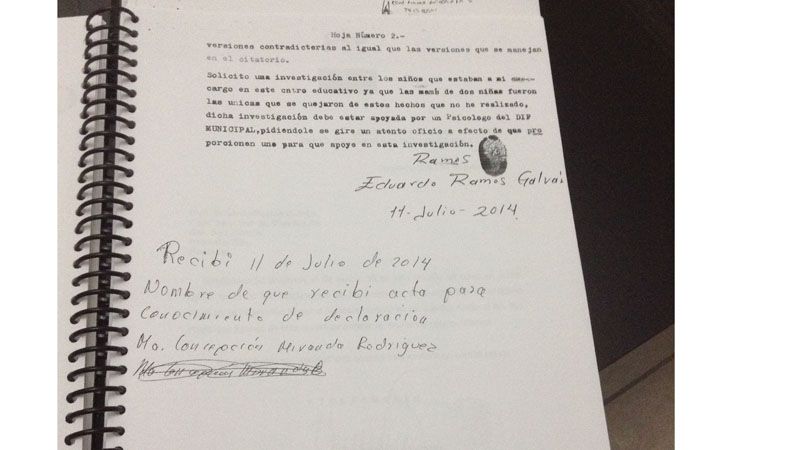 Hoja Número 2.-
versiones contradictorias al igual que las versiones que se manejan
en el citatorio.
Solicito una investigación entre los niños que estaban a mi
cargo en este cntro educativo ya que las mamá de dos niñas fueron
las unicas que se quejaron de estos hechos que no he realizado,
dicha investigación debe estar apoyada por un Psicologo del DIF
MUNICIPAL,pidiendole se gire un atento oficio a efecto de que pro
porcionen uno para que apoye en esta investigación.
Ramos
Eduardo Ramos Galvai
11-Julio-2014
Recibi 11 de Julio de 2014
Nombre de que recibi acta para
Conocimiento de declaracion
Ma. Concepción Miranda Rodriguez